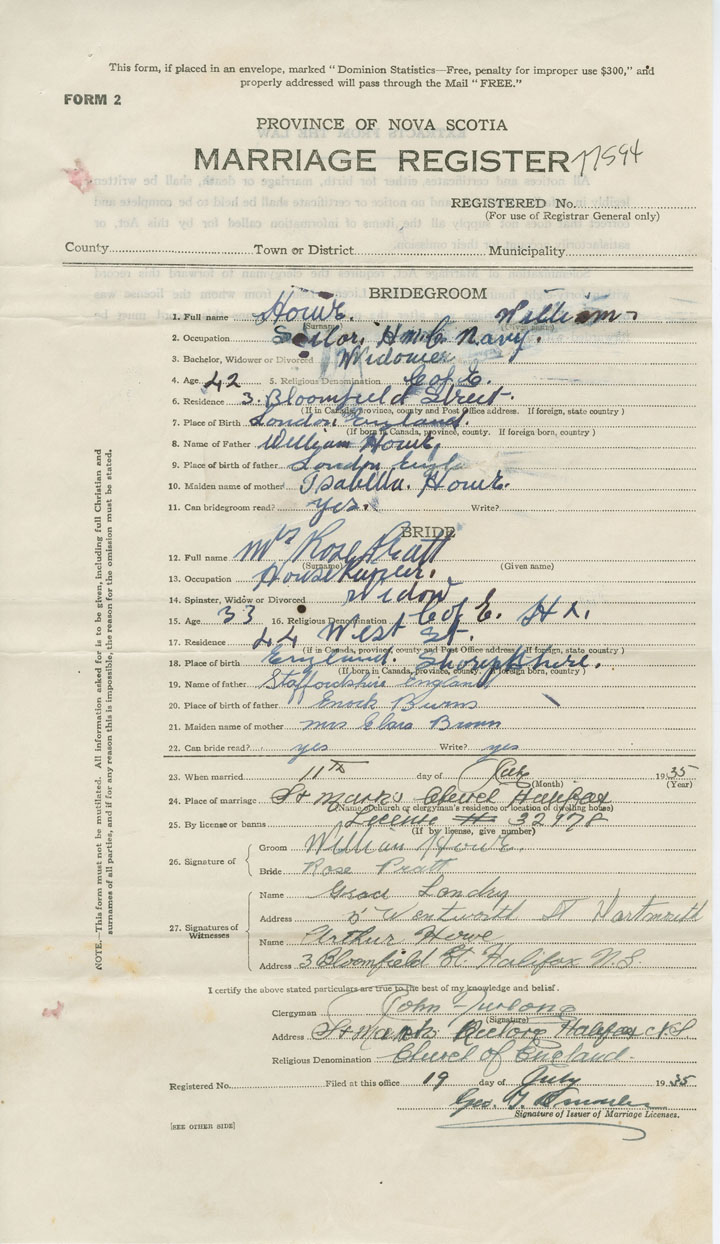 This form, if placed in an envelope, marked "Dominion Statistics—Free, penalty for improper use $300," and
properly addressed will pass through the Mail "FREE."
FORM 2
PROVINCE OF NOVA SCOTIA
MARRIAGE REGISTER 77594
REGISTERED No.
(For use of Registrar General only)
County Town or District Municipality
BRIDEGROOM
1. Full name Howe. William
(Surname) (Given name)
2. Occupation Sailor, H.M.C. Navy.
3. Bachelor, Widower or Divorced Widower
4. Age 42 5. Religious Denomination C of E.
6. Residence 3. Bloomfield Street.
(If in Canada, province, county and Post Office address. If foreign, state country)
7. Place of Birth London England.
(If born in Canada, province, county. If foreign born, country)
8. Name of Father William Howe,
9. Place of birth of father London Engla
10. Maiden name of mother Isabella. Howe.
11. Can bridegroom read? yes. Write?
BRIDE
12. Full name Mrs Rose Pratt
(Surname) (Given name)
13. Occupation Housekeeper.
14. Spinster, Widow or Divorced Widow
15. Age 33 16. Religious Denomination C of E. Hx.
17. Residence 44 West St.
(If in Canada, province, county and Post Office address. If foreign, state country)
18. Place of birth England. Shropshire.
(If born in Canada, province, county. If foreign born, country)
19. Name of father Staffordshire England
20. Place of birth of father Enock Burns
21. Maiden name of mother mrs Clara Brown
22. Can bride read? yes Write? yes
23. When married 11th day of July 1935
(Month) (Year)
24. Place of marriage St Mark's Church Halifax
(Name of church or clergyman's residence or location of dwelling house)
25. By license or banns License # 32978
(If by license, give number)
26. Signature of
Groom William Howe.
Bride Rose Pratt
27. Signatures of Witnesses
Name Grace Landry
Address Wentworth St Dartmouth
Name Arthur Howe
Address 3 Bloomfield St. Halifax N.S.
I certify the above stated particulars are true to the best of my knowledge and belief.
Clergyman John Furlong
(Signature)
Address St Mark's Rectory Halifax N.S
Religious Denomination Church of England.
Registered No. Filed at this office 19 day of July 1935
Geo. T.
Signature of Issuer of Marriage Licenses.
[SEE OTHER SIDE]
NOTE.—This form must not be mutilated. All information asked for is to be given, including full Christian and
surnames of all parties, and if for any reason this is impossible, the reason for the omission must be stated.